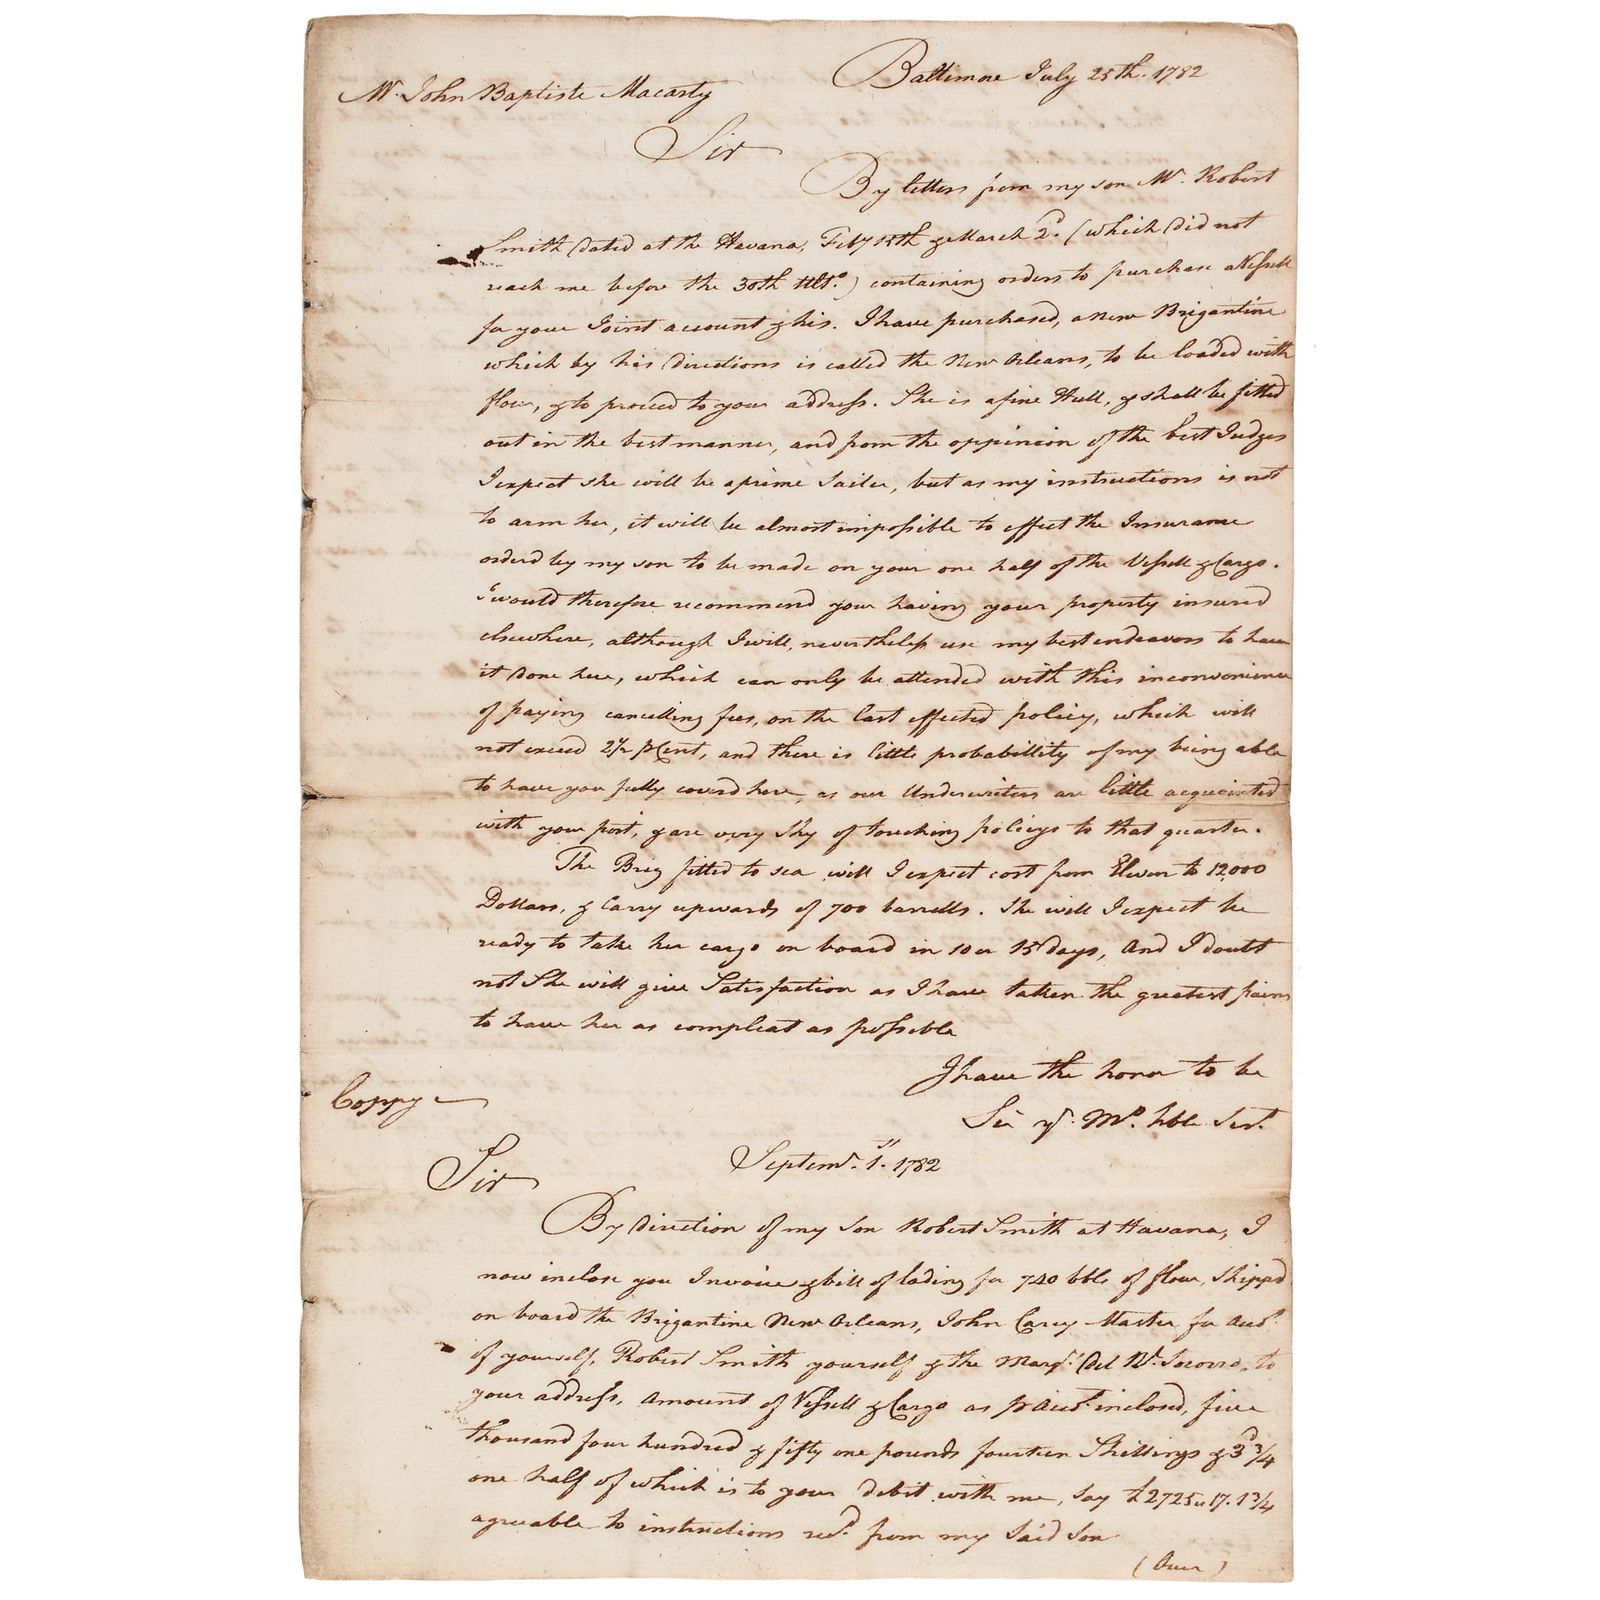 Baltimore July 25th. 1782
Mr. John Baptiste Macarty
Sir
By letters from my son Mr. Robert
Smith dated at the Havana, Feby 15th & March 2d. (which did not
reach me before the 30th Ulto.) containing orders to purchase a Vessell
for your Joint account & his. I have purchased, a New Brigantine
which by his directions is called the New Orleans, to be loaded with
flour, & to proceed to your address. She is a fine Hull, & shall be fitted
out in the best manner, and from the oppinion of the best Judges
I expect she will be a prime Sailer, but as my instructions is not
to arm her, it will be almost impossible to effect the Insurance
orderd by my son to be made on your one half of the Vessell & Cargo.
I would therefore recommend your having your property insured
elsewhere, although I will, nevertheless use my best endeavors to have
it done here, which can only be attended with this inconvenience
of paying cancelling fees, on the last effected policy, which will
not exceed 2½ pCent, and there is little probabillity of my being able
to have you fully coverd here, as our Underwriters are little acquainted
with your port, & are very Shy of touching policys to that quarter.
The Brig fitted to sea will I expect cost from Eleven to 12,000
Dollars, & Carry upwards of 700 barrells. She will I expect be
ready to take her cargo on board in 10 or 15 days, And I doubt
not She will give Satisfaction as I have taken the greatest pains
to have her as compleat as possible
I have the honor to be
Sir yr. Mo. hble Servt.
Coppy
Septemr. 1st. 1782
Sir
By direction of my Son Robert Smith at Havana, I
now inclose you Invoice & bill of lading for 740 bbls of flour, Shippd
on board the Brigantine New Orleans, John Carey Master for Acct.
of yourself, Robert Smith yourself & the Marqs. Del Rl. Socorro, to
your address, Amount of Vessell & Cargo as pr Acct. inclosed, five
thousand four hundred & fifty one pounds fourteen Shillings & 3d ¾
one half of which is to your debit with me, Say £2725 „ 17. 1¾
agreeable to instructions recd. from my Said Son
(Over)